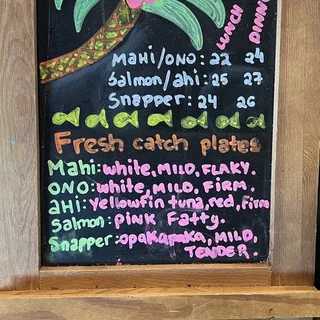 LUNCH DINN
Mahi/ONO: 22 24
Salmon/ahi: 25 27
Snapper: 24 26
Fresh catch plates
Mahi: white, MILD, FLAKY.
ONO: white, MILD, FIRM.
aHi: Yellowfin tuna, red, Firm
Salmon: PiNK Fatty.
Snapper: opakapaka, MILD,
TENDER.